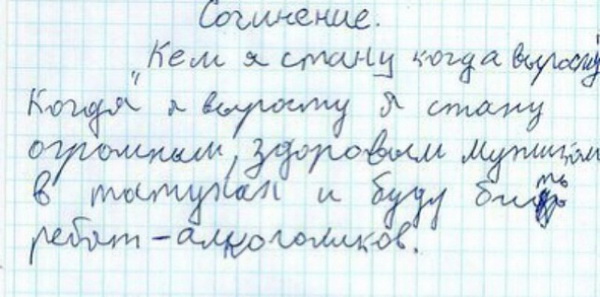 Сочинение.
"Кем я стану когда выросту"
Когдя я выросту я стану
огромным, здоровым мужиком
в татухах и буду бить
ребят-алкоголиков.